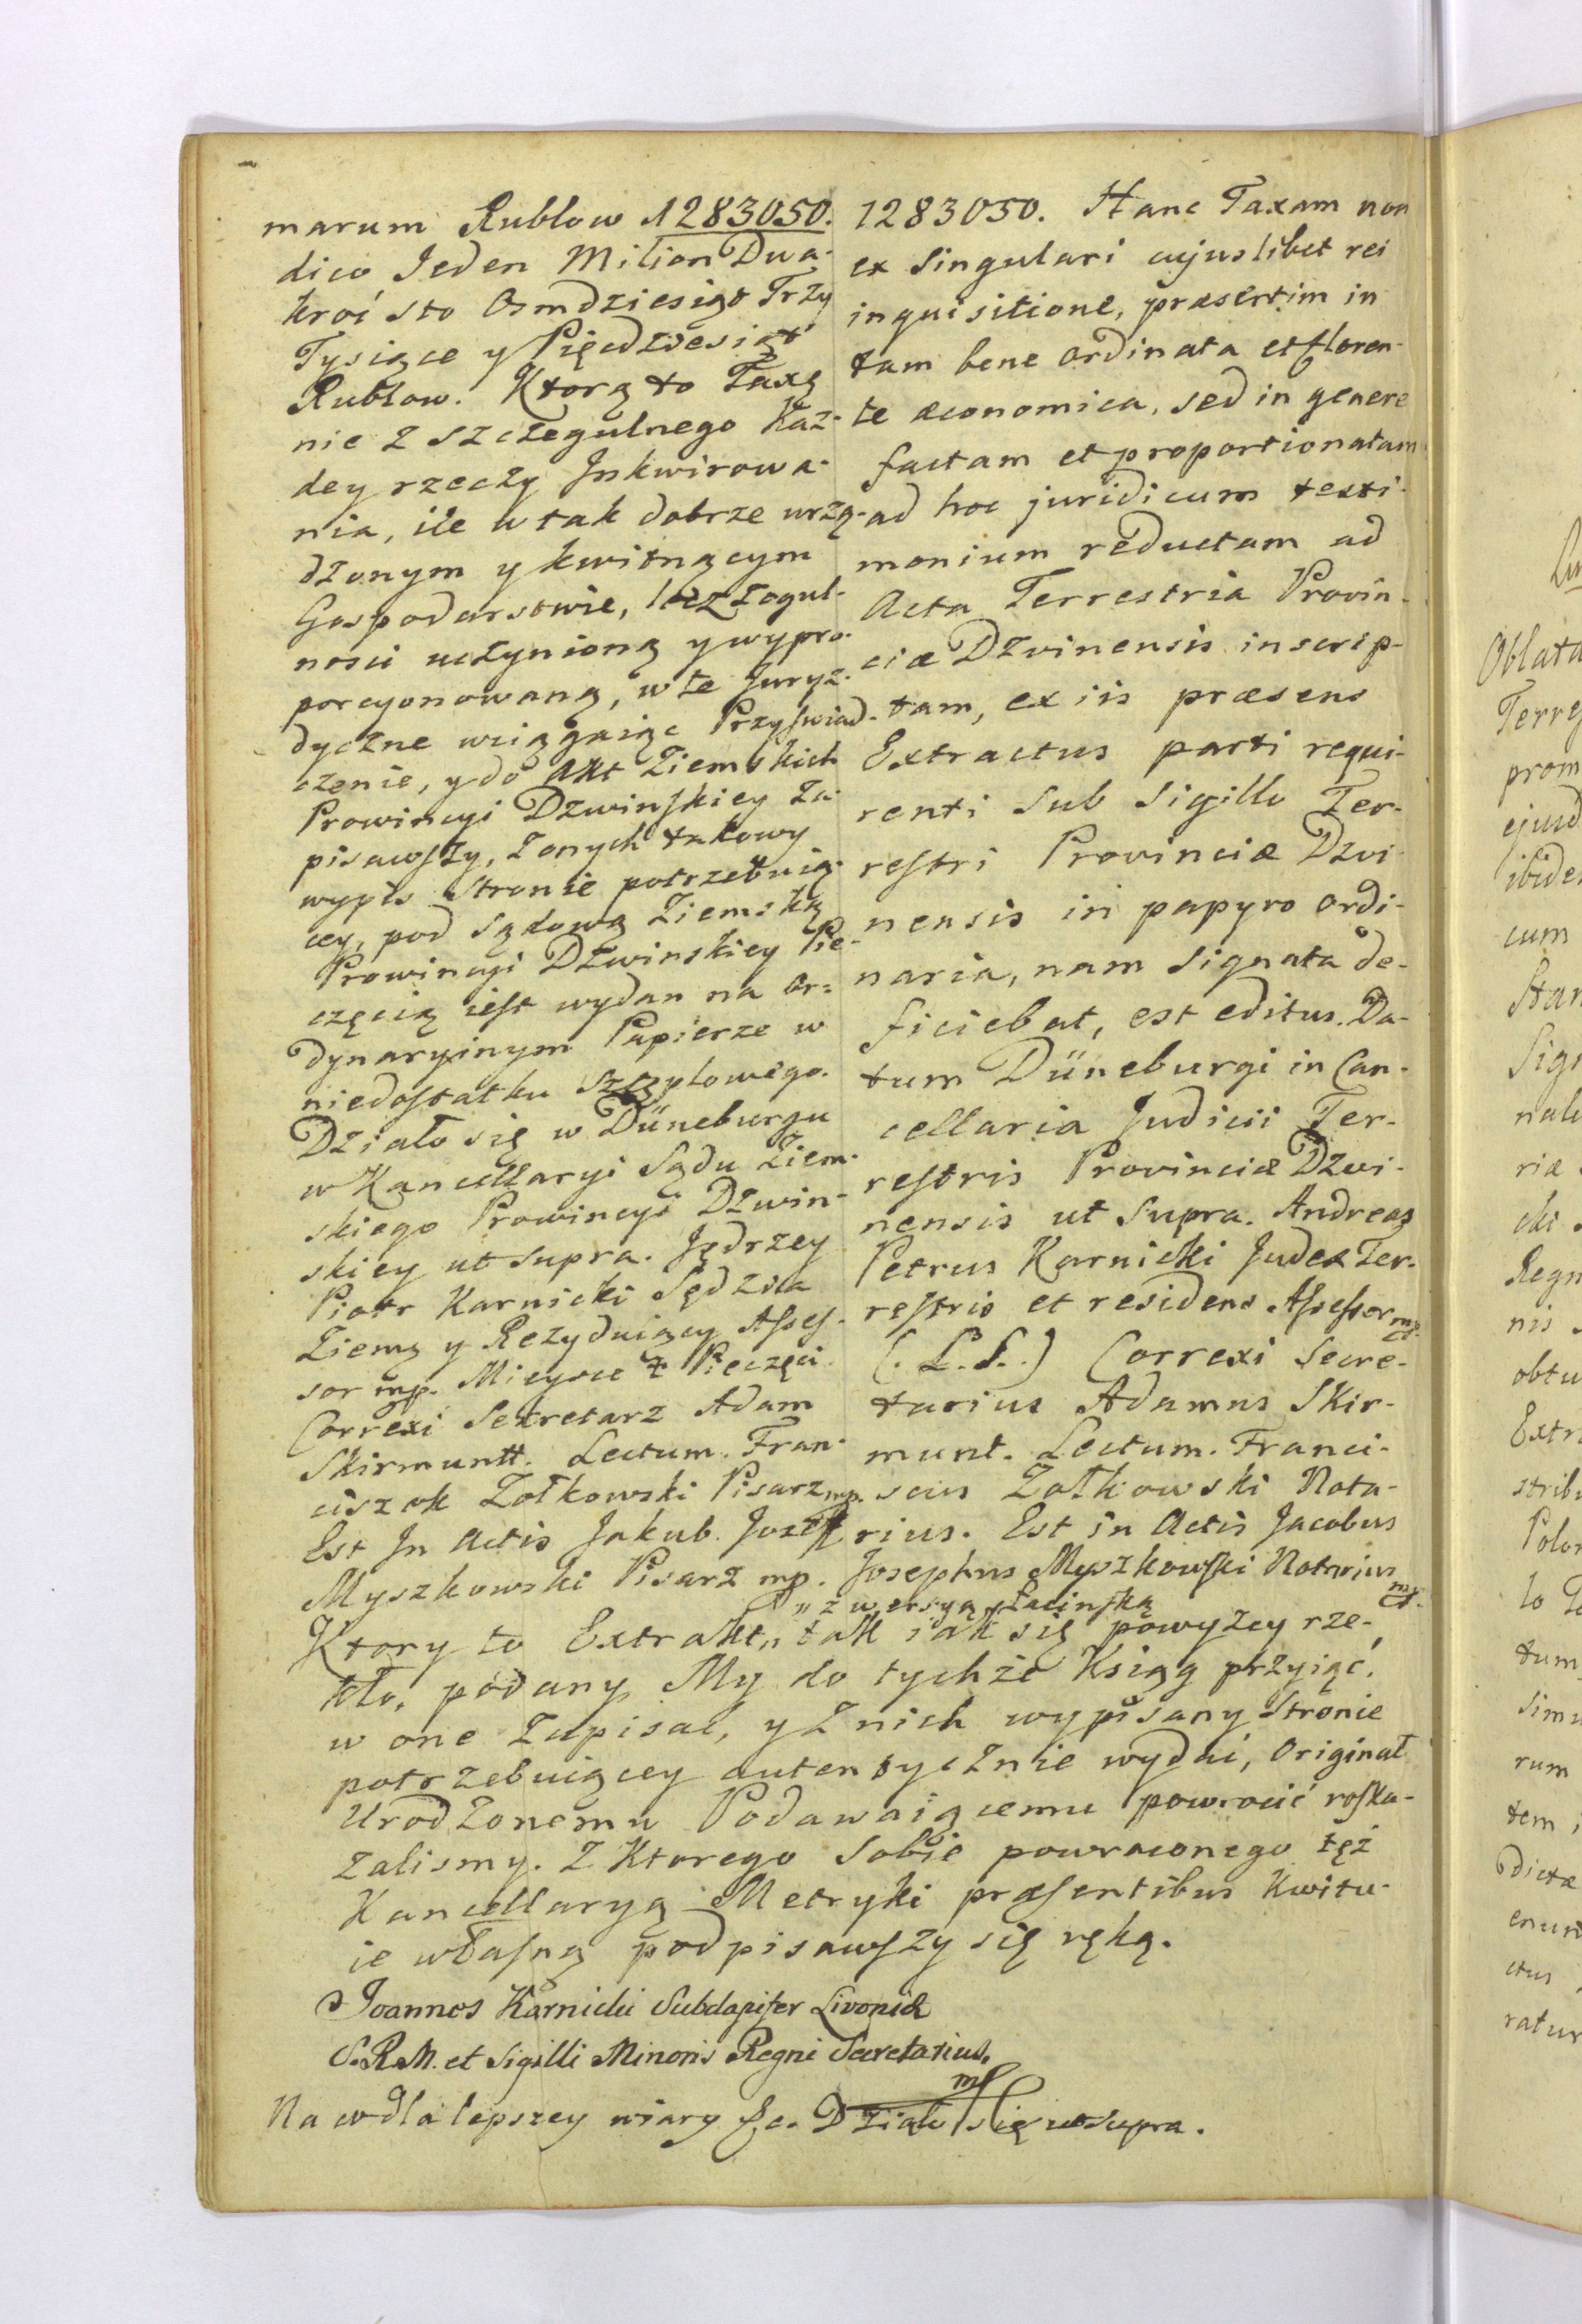 marum Rublow 1283050.
dico Jeden Milion Dwa-
kroć sto Osmdziesiąt Trzy
Tysiące y Pięćdziesiąt
Rublow. Ktorą to Taxę
nie z szczegulnego Każ-
dey rzeczy Jnkwirowa-
nia, ile w tak dobrze urzą-
dzonym y kwitnącym
Gospodarstwie, lecz z ogul-
nosci uczynioną y wypro-
porcyonowaną, w te Juryz-
dyczne wciągaiąc Przyswiad-
czenie, y do Akt Ziemskich
Prowincyi Dzwinskiey za-
pisawszy, z onych takowy
wypis stronie potrzebuią-
cey, pod Sądową Ziemską
Prowincyi Dzwinskiey Pie-
częcią iest wydan na Or-
dynaryinym Papierze w
niedostatku Sczęplowego.
Działo się w Düneburgu
w Kancellaryi Sądu Ziem-
skiego Prowincyi Dzwin-
skiey ut supra. Jędrzey
Piotr Karnicki Sędzia
Ziems y Rezyduiący Asses-
sor mp. Mieysce Pieczęci
Correxi Sekretarz Adam
Skirmuntt. Lectum. Fran-
ciszek Zołkowski Pisarz mp.
Est Jn Actis Jakub Jozeff
Myszkowski Pisarz mp.
1283050. Hanc Taxam non
ex singulari cujuslibet rei
inquisitione, præsertim in
tam bene ordinata et floren-
te œconomica, sed in genere
factam et proportionatam
ad hoc juridicum testi-
monium reductam ad
Acta Terrestria Provin-
ciæ Dzvinensis inscrip-
tam, ex iis præsens
Extractus parti requi-
renti sub sigillo Ter-
restri Provinciæ Dzvi-
nensis in papyro ordi-
naria, nam signata de-
ficiebat, est editus. Da-
tum Düneburgi in Can-
cellaria Judicii Ter-
restris Provinciæ Dzvi-
nensis ut supra. Andreas
Petrus Karnicki Judex Ter-
restris et residens Assessor mp.
(.L.S.) Correxi Secre-
tarius Adamus Skir-
munt. Lectum. Franci-
scus Zołkowski Nota-
rius. Est in Actis Jacobus
Josephus Myszkowski Notarius
mp.
" z wersyą Łacinską
Ktory to Extrakt " tak iak się powyżey rze-
kło, podany My do tychże Ksiąg przyiąć,
w one zapisać, y z nich wypisany Stronie
potrzebuiącey autentycznie wydać, Originał
Urodzonemu Podawaiącemu powrocić roska-
zalismy. Z Ktorego sobie powroconego też
Kancellaryą Metryki præsentibus Kwitu-
ie własną podpisawszy się ręką.
Joannes Karnicki Subdapifer Livoniæ
S.R.M. et Sigilli Minoris Regni Secretarius.
mp
Na co dla lepszey wiary &c. Działo się ut supra.
Oblata
Terre
prom
ejusd
ibide
cum
Stan
Sig
nali
riæ
cki
Regn
nis
obtu
Extr
strib
Polon
lo
tum
simu
rum
tem
dictæ
enun
ctus
ratur